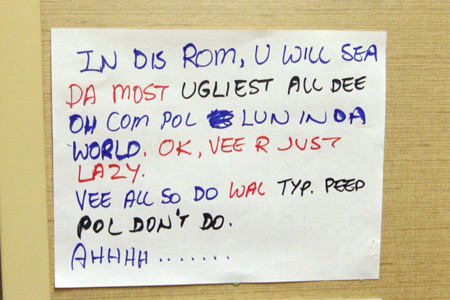 IN DIS ROM, U WILL SEA
DA MOST UGLIEST ALL DEE
OH COM POL LUN IN DA
WORLD. OK, VEE R JUST
LAZY.
VEE ALL SO DO WAL TYP. PEED
POL DON'T DO.
AHHHH.......